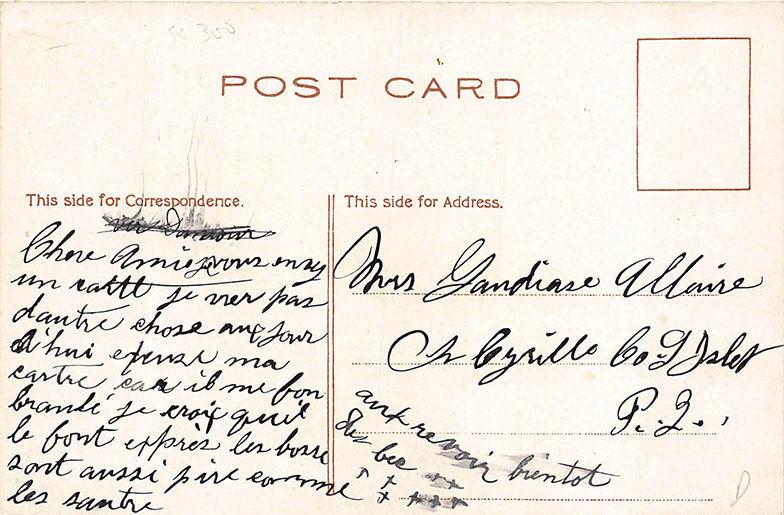 sc 300
POST CARD
This side for Correspondence.
This side for Address.
Chere Amie je vous envoy
un cartt je vier pas
dautre chose aux jour
d'hui expuse ma
cartre car il me fon
branlé je croix quil
le font exprès les bosse
sont aussi pire comme
les santre
Mrs Gaudiase Allaire
St Cyrille Co L Islet
P. Q.
aux revoir bientot
des bec + + +
+ + + + +
D